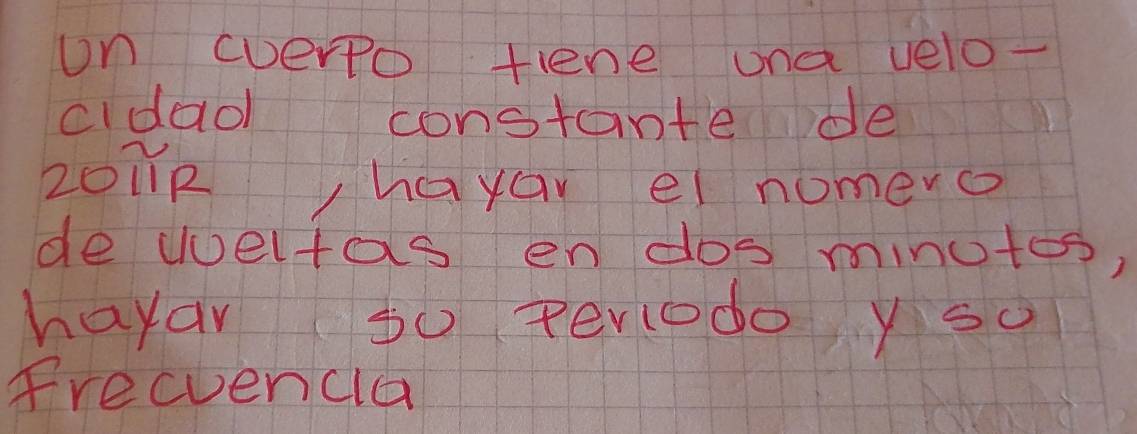 Un cuerpo tiene una velo-
cidad constante de
20πR, hayar el numero
de vueltas en dos minutos,
hayar su periodo y su
Frecuencia